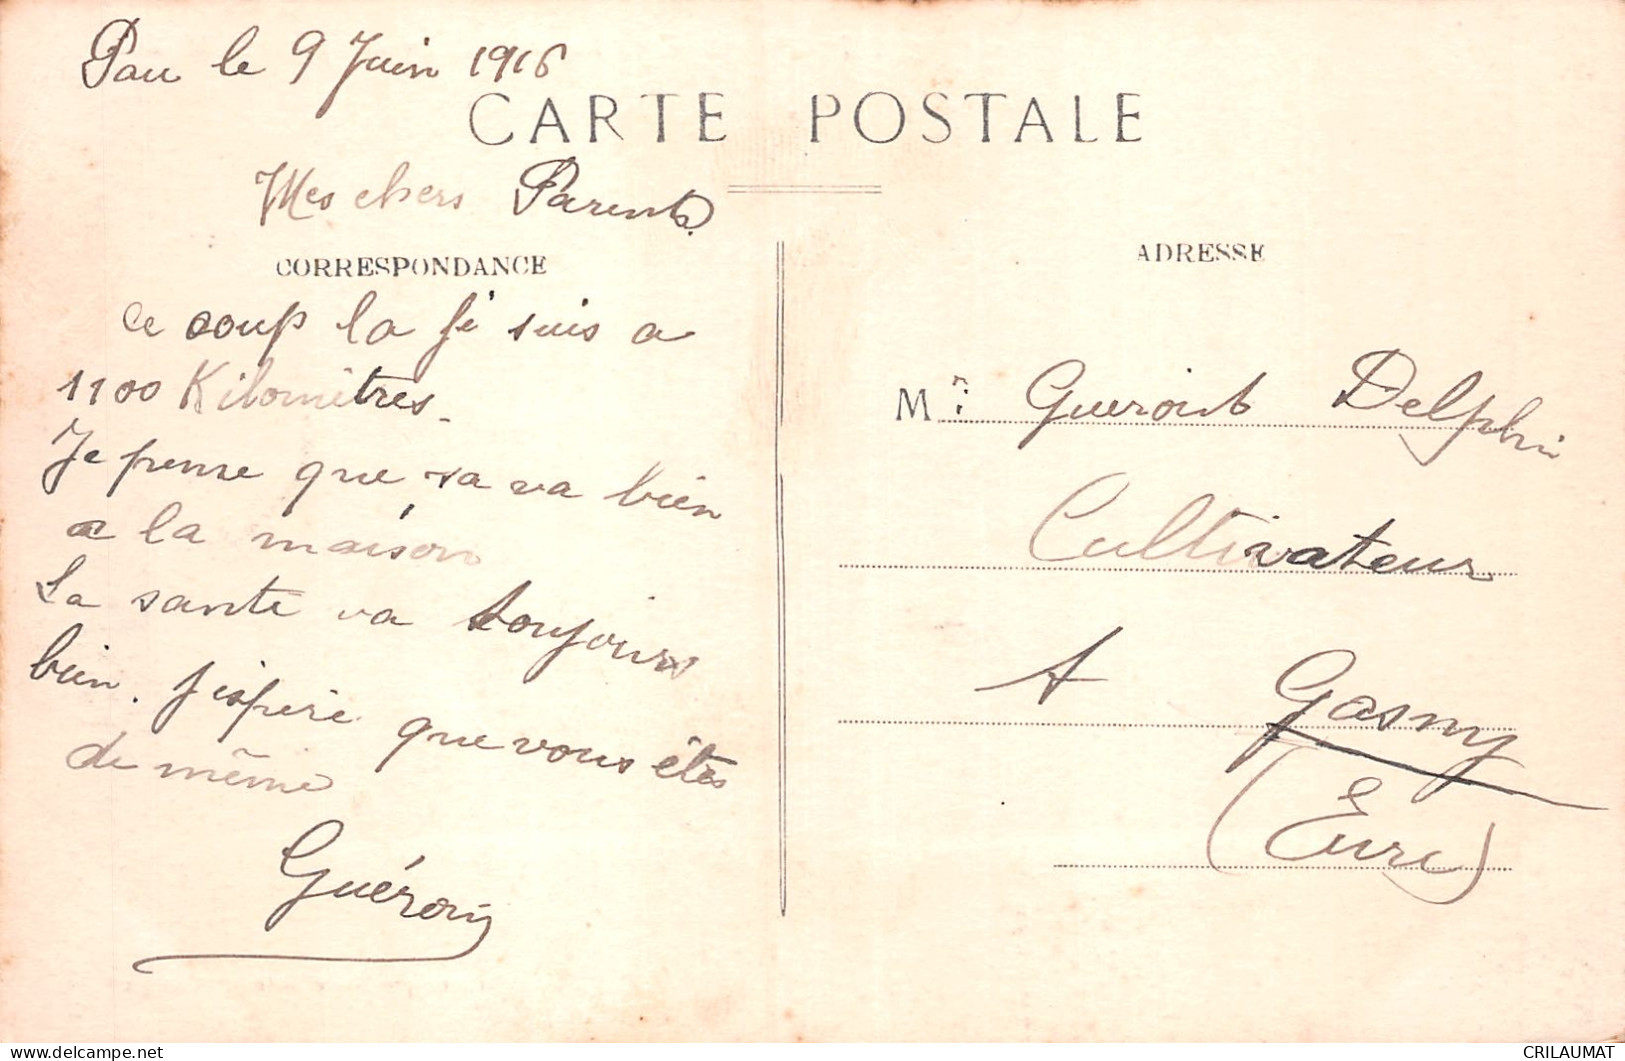 Pau le 9 Juin 1916
CARTE POSTALE
Mes chers Parents.
CORRESPONDANCE
Ce coup la je suis a
1100 Kilomètres.
Je pense que sa va bien
a la maison
La sante va toujours
bien. J'espère que vous êtes
de même
Guéroin
ADRESSE
Mr Gueroint Delphin
Cultivateur
A Gasny
(Eure)
CRILAUMAT